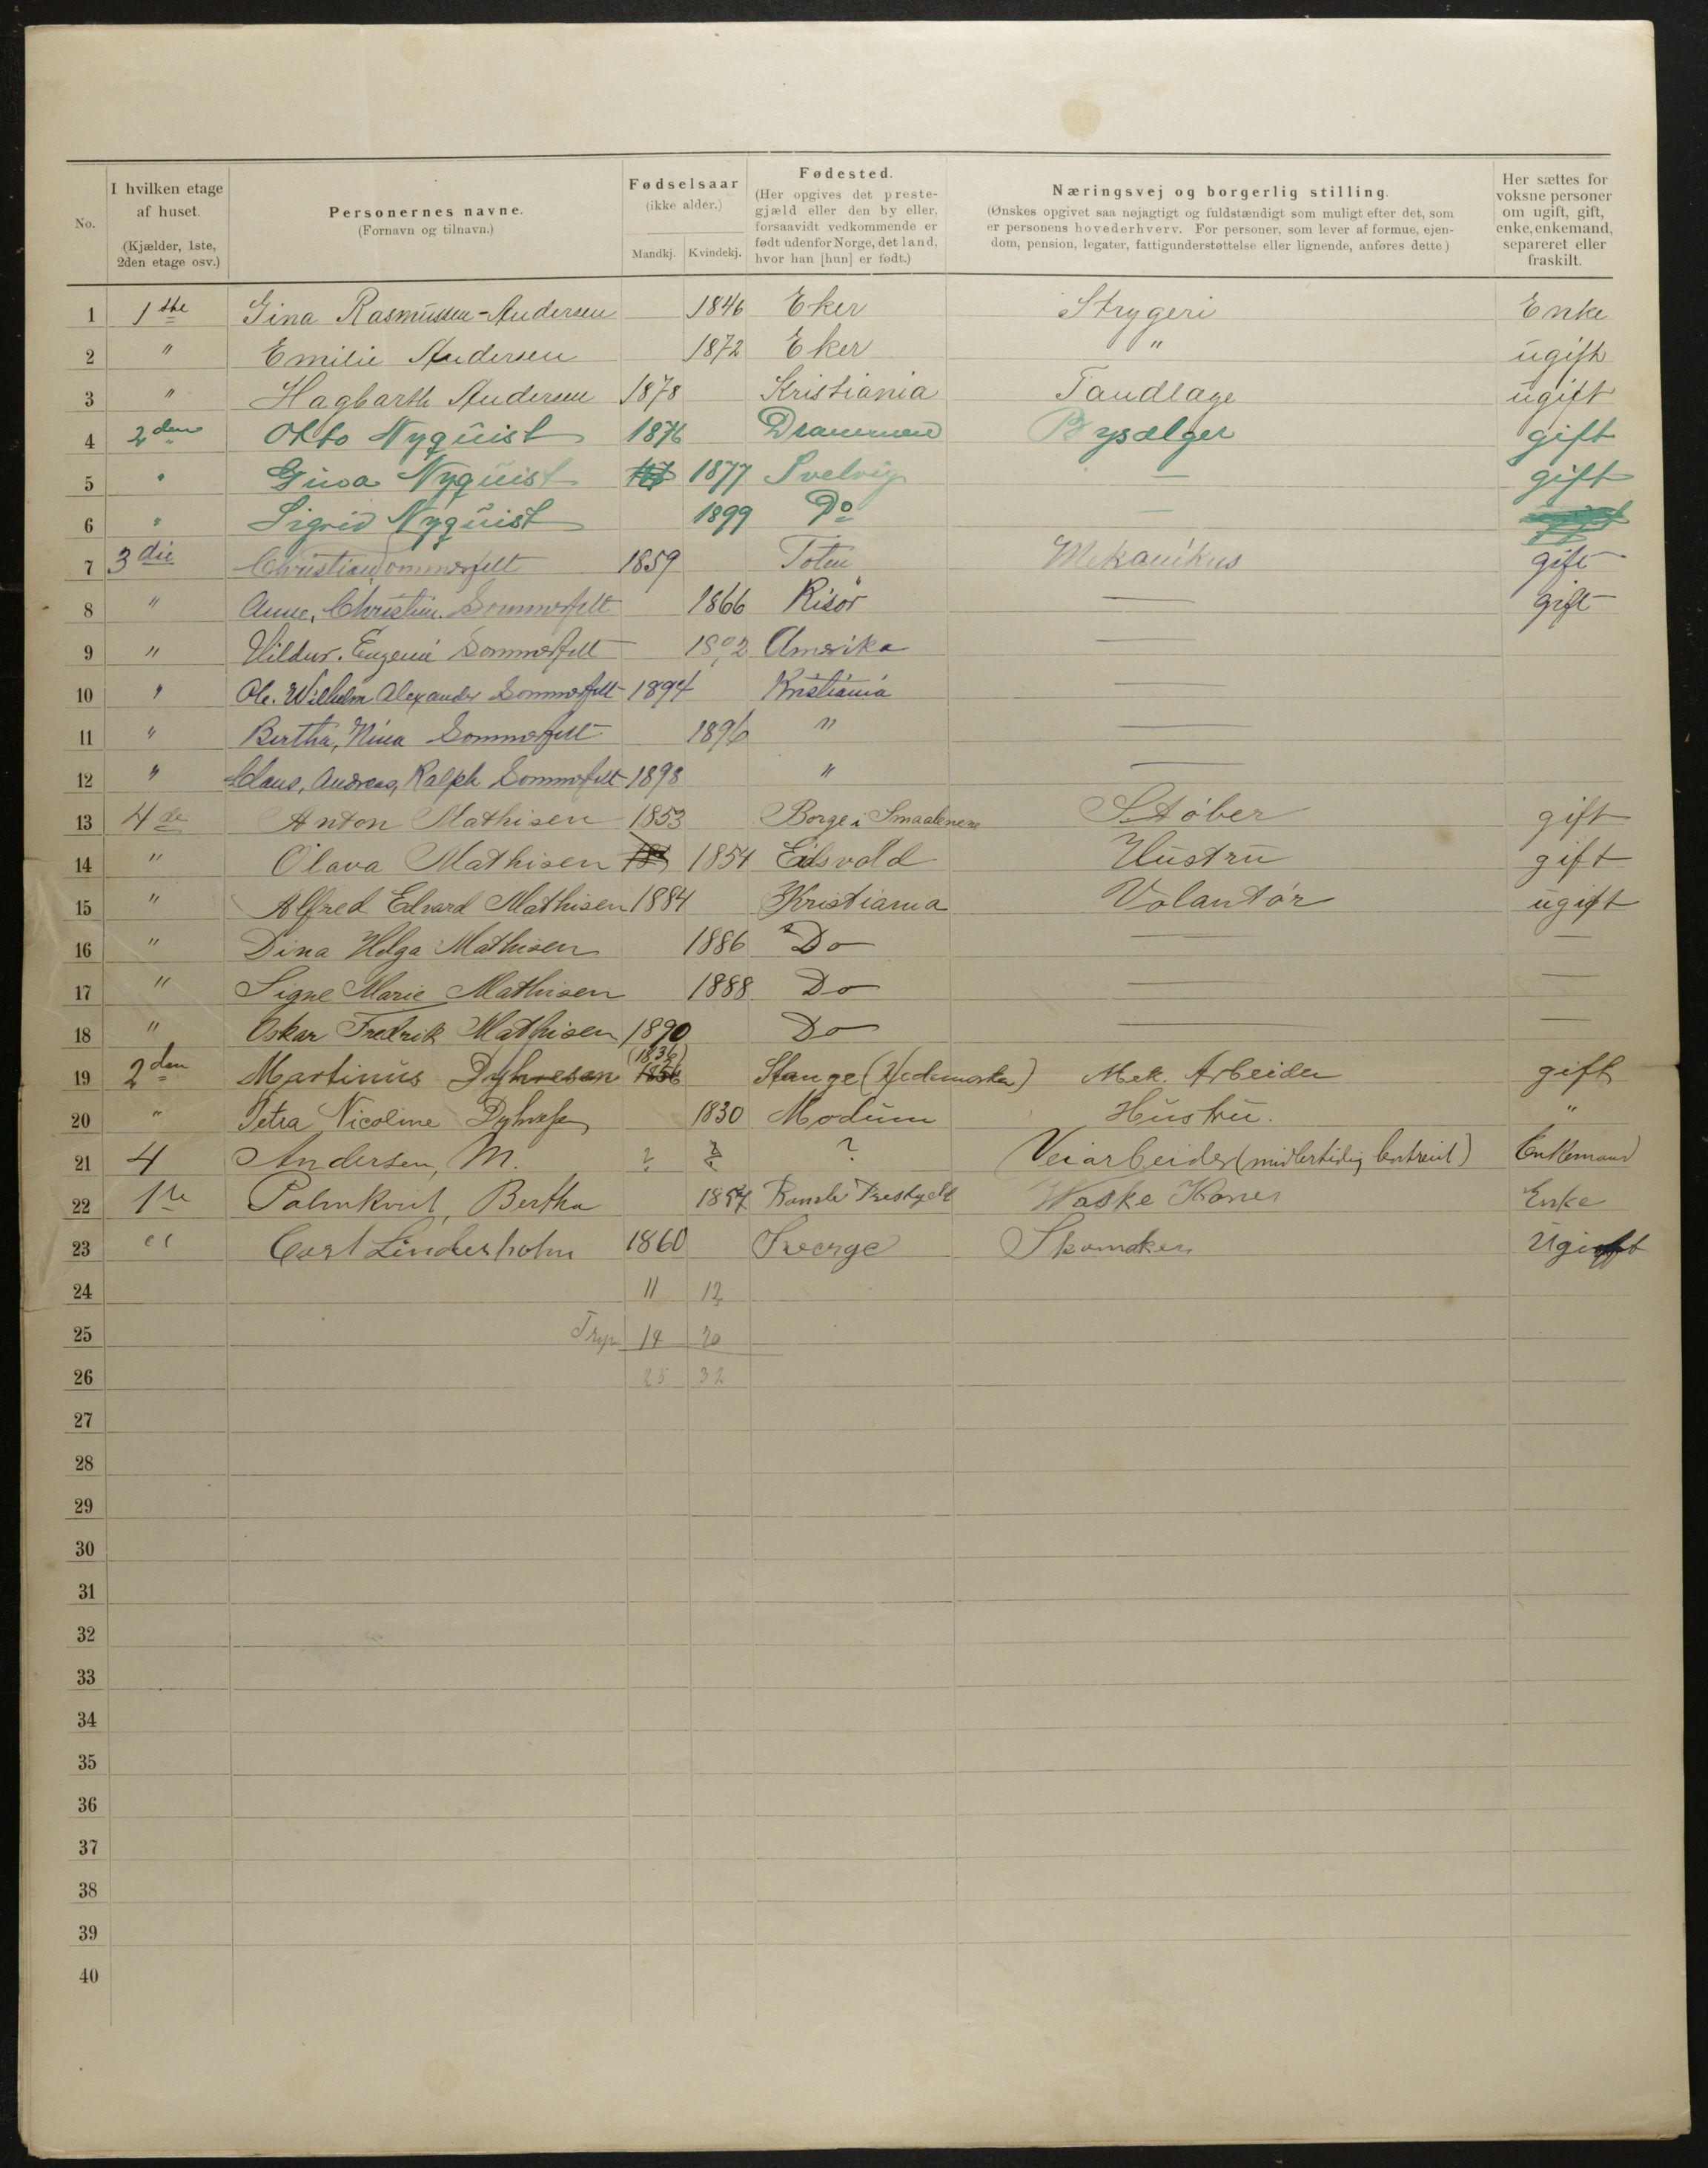 No. | I hvilken etage af huset. (Kjælder, 1ste, 2den etage osv.) | Personernes navne. (Fornavn og tilnavn.) | Fødselsaar (ikke alder.) Mandkj. Kvindekj. | Fødested. (Her opgives det prestegjæld eller den by eller, forsaavidt vedkommende er født udenfor Norge, det land, hvor han [hun] er født.) | Næringsvej og borgerlig stilling. (Ønskes opgivet saa nøjagtigt og fuldstændigt som muligt efter det, som er personens hovederhverv. For personer, som lever af formue, ejendom, pension, legater, fattigunderstøttelse eller lignende, anføres dette) | Her sættes for voksne personer om ugift, gift, enke, enkemand, separeret eller fraskilt.
1 1ste Gina Rasmussen-Andersen 1846 Eker Strygeri Enke
2 " Emilie Andersen 1872 Eker " ugift
3 " Hagbarth Andersen 1878 Kristiania Tandlage ugift
4 2den Otto Nyquist 1876 Drammen Bysælger gift
5 " Nyquist 1877 Svelvig — gift
6 " Sigrid Nyquist 1899 Do —
7 3die Christian Sommerfelt 1859 Toten Mekanikus gift
8 " Anne, Christin. Sommerfelt 1866 Risör — gift
9 " Hildur. Eugeni Sommerfelt Amerika —
10 " Ole. Wilhelm Alexander Sommerfelt 1894 Kristiania —
11 " Bertha, Nina Sommerfelt 1896 " —
12 " Claus, Andreas, Ralph Sommerfelt 1898 " —
13 4de Anton Mathisen 1853 Borge i Smaalenene Støber gift
14 " Olava Mathisen 1854 Eidsvold Hustru gift
15 " Alfred Edvard Mathisen 1884 Kristiania Volantør ugift
16 " Dina Helga Mathisen 1886 Do — —
17 " Signe Marie Mathisen 1888 Do — —
18 " Oskar Fredrik Mathisen 1890 Do — —
19 2den Martinus Dyhresen (1836) 1856 Stange (Hedemarken) Mek. Arbeider gift
20 " Petra Nicoline Dyhresen 1830 Modum Hustru. "
21 4 Andersen, M. ? ? ? Veiarbeider (midlertidig bortreist) Enkemand
22 1ste Palmkvist, Bertha Vaske Kone Enke
23 " Carl Linderholm 1860 Sverge Skomaker Ugift
24 11 12
25 14 20
26 25 32
27
28
29
30
31
32
33
34
35
36
37
38
39
40